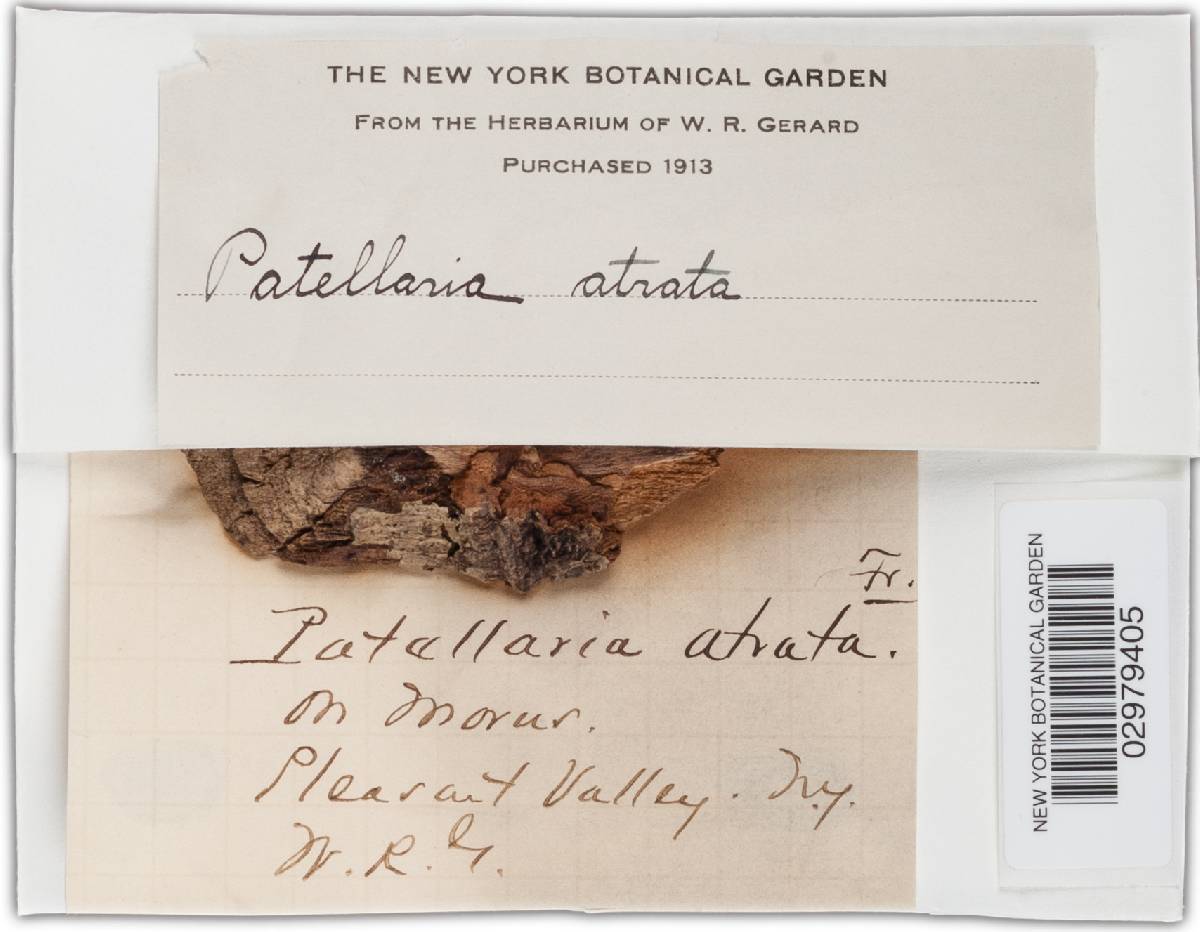 THE NEW YORK BOTANICAL GARDEN
FROM THE HERBARIUM OF W. R. GERARD
PURCHASED 1913
Patellaria atrata
Fr.
Patellaria atrata.
on Morus.
Pleasant Valley. N.y.
W. R. G.
NEW YORK BOTANICAL GARDEN
02979405